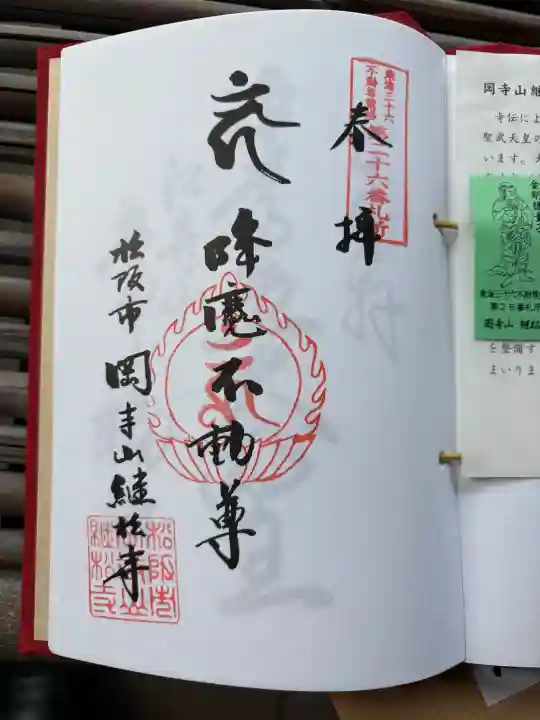 奉拝
東海三十六
不動尊霊場
第二十六番札所
降魔不動尊
松阪市 岡寺山継松寺
松阪市
岡寺山
継松寺
岡寺山 継
寺伝によ
聖武天皇の
います。
を整備す
まいりま
東海三十六不動尊
第26番札所
岡寺山 継松